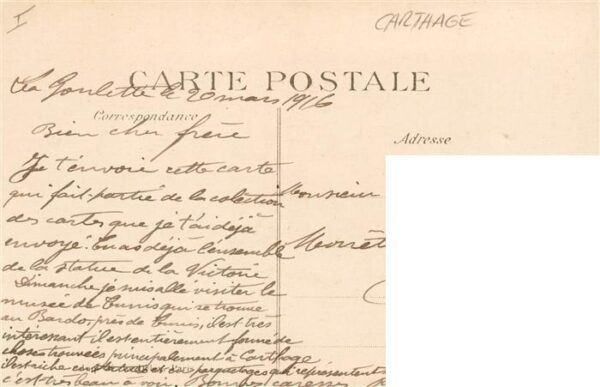 I
CARTHAGE
CARTE POSTALE
La Goulette le 20 mars 1916
Correspondance
Adresse
Bien cher frère
Je t'envoie cette carte
qui fait partie de la colection
des cartes que je t'ai déjà
envoyé. Tu as déjà l'ensemble
de la statue de la Victoire
Dimanche je suis allé visiter le
musée de Tunis qui se trouve
au Bardo, près de Tunis, il est très
intéressant il est entièrement formé de
choses trouvées principalement à Carthage
il est riche en statues et en parquetages qui représentent
c'est très beau à voir. Bonnes caresses
Monsieur